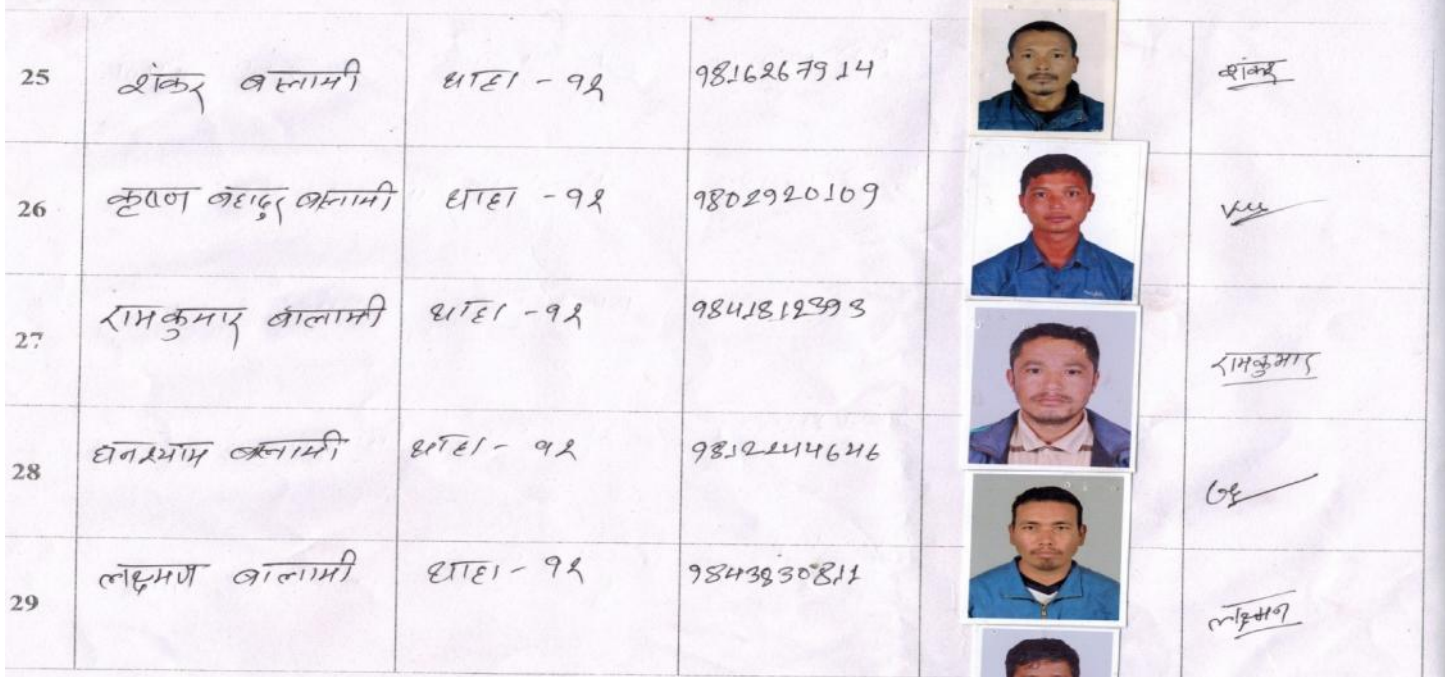 25 शंकर बलामी थाहा - १२ 9816267914 शंकर
26 कृष्ण बहादुर बलामी थाहा - १२ 9802920109
27 रामकुमार बालामी थाहा - १२ रामकुमार
28 घनश्याम बलामी थाहा - १२
29 लक्ष्मण बालामी थाहा - १२ 9843830811 लक्ष्मण